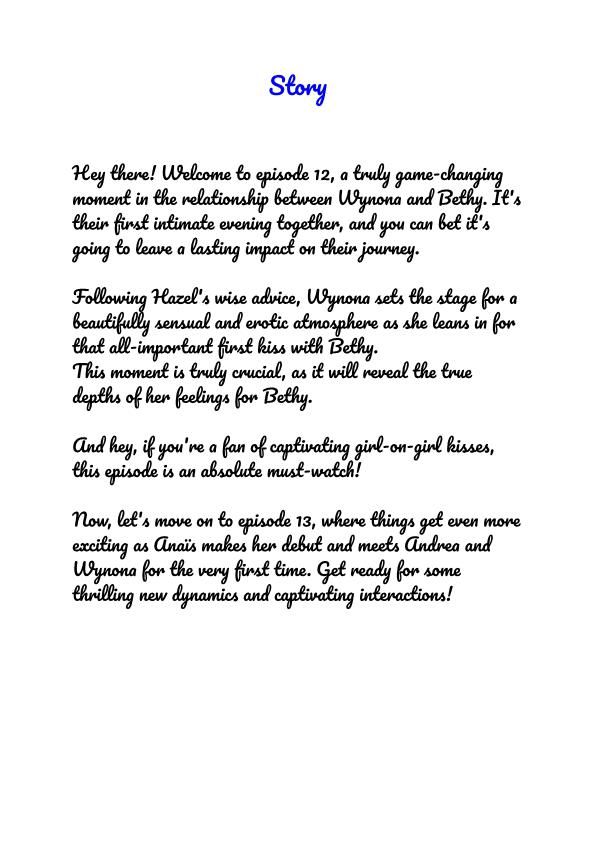 Story
Hey there! Welcome to episode 12, a truly game-changing
moment in the relationship between Wynona and Bethy. It's
their first intimate evening together, and you can bet it's
going to leave a lasting impact on their journey.
Following Hazel's wise advice, Wynona sets the stage for a
beautifully sensual and erotic atmosphere as she leans in for
that all-important first kiss with Bethy.
This moment is truly crucial, as it will reveal the true
depths of her feelings for Bethy.
And hey, if you're a fan of captivating girl-on-girl kisses,
this episode is an absolute must-watch!
Now, let's move on to episode 13, where things get even more
exciting as Anaïs makes her debut and meets Andrea and
Wynona for the very first time. Get ready for some
thrilling new dynamics and captivating interactions!